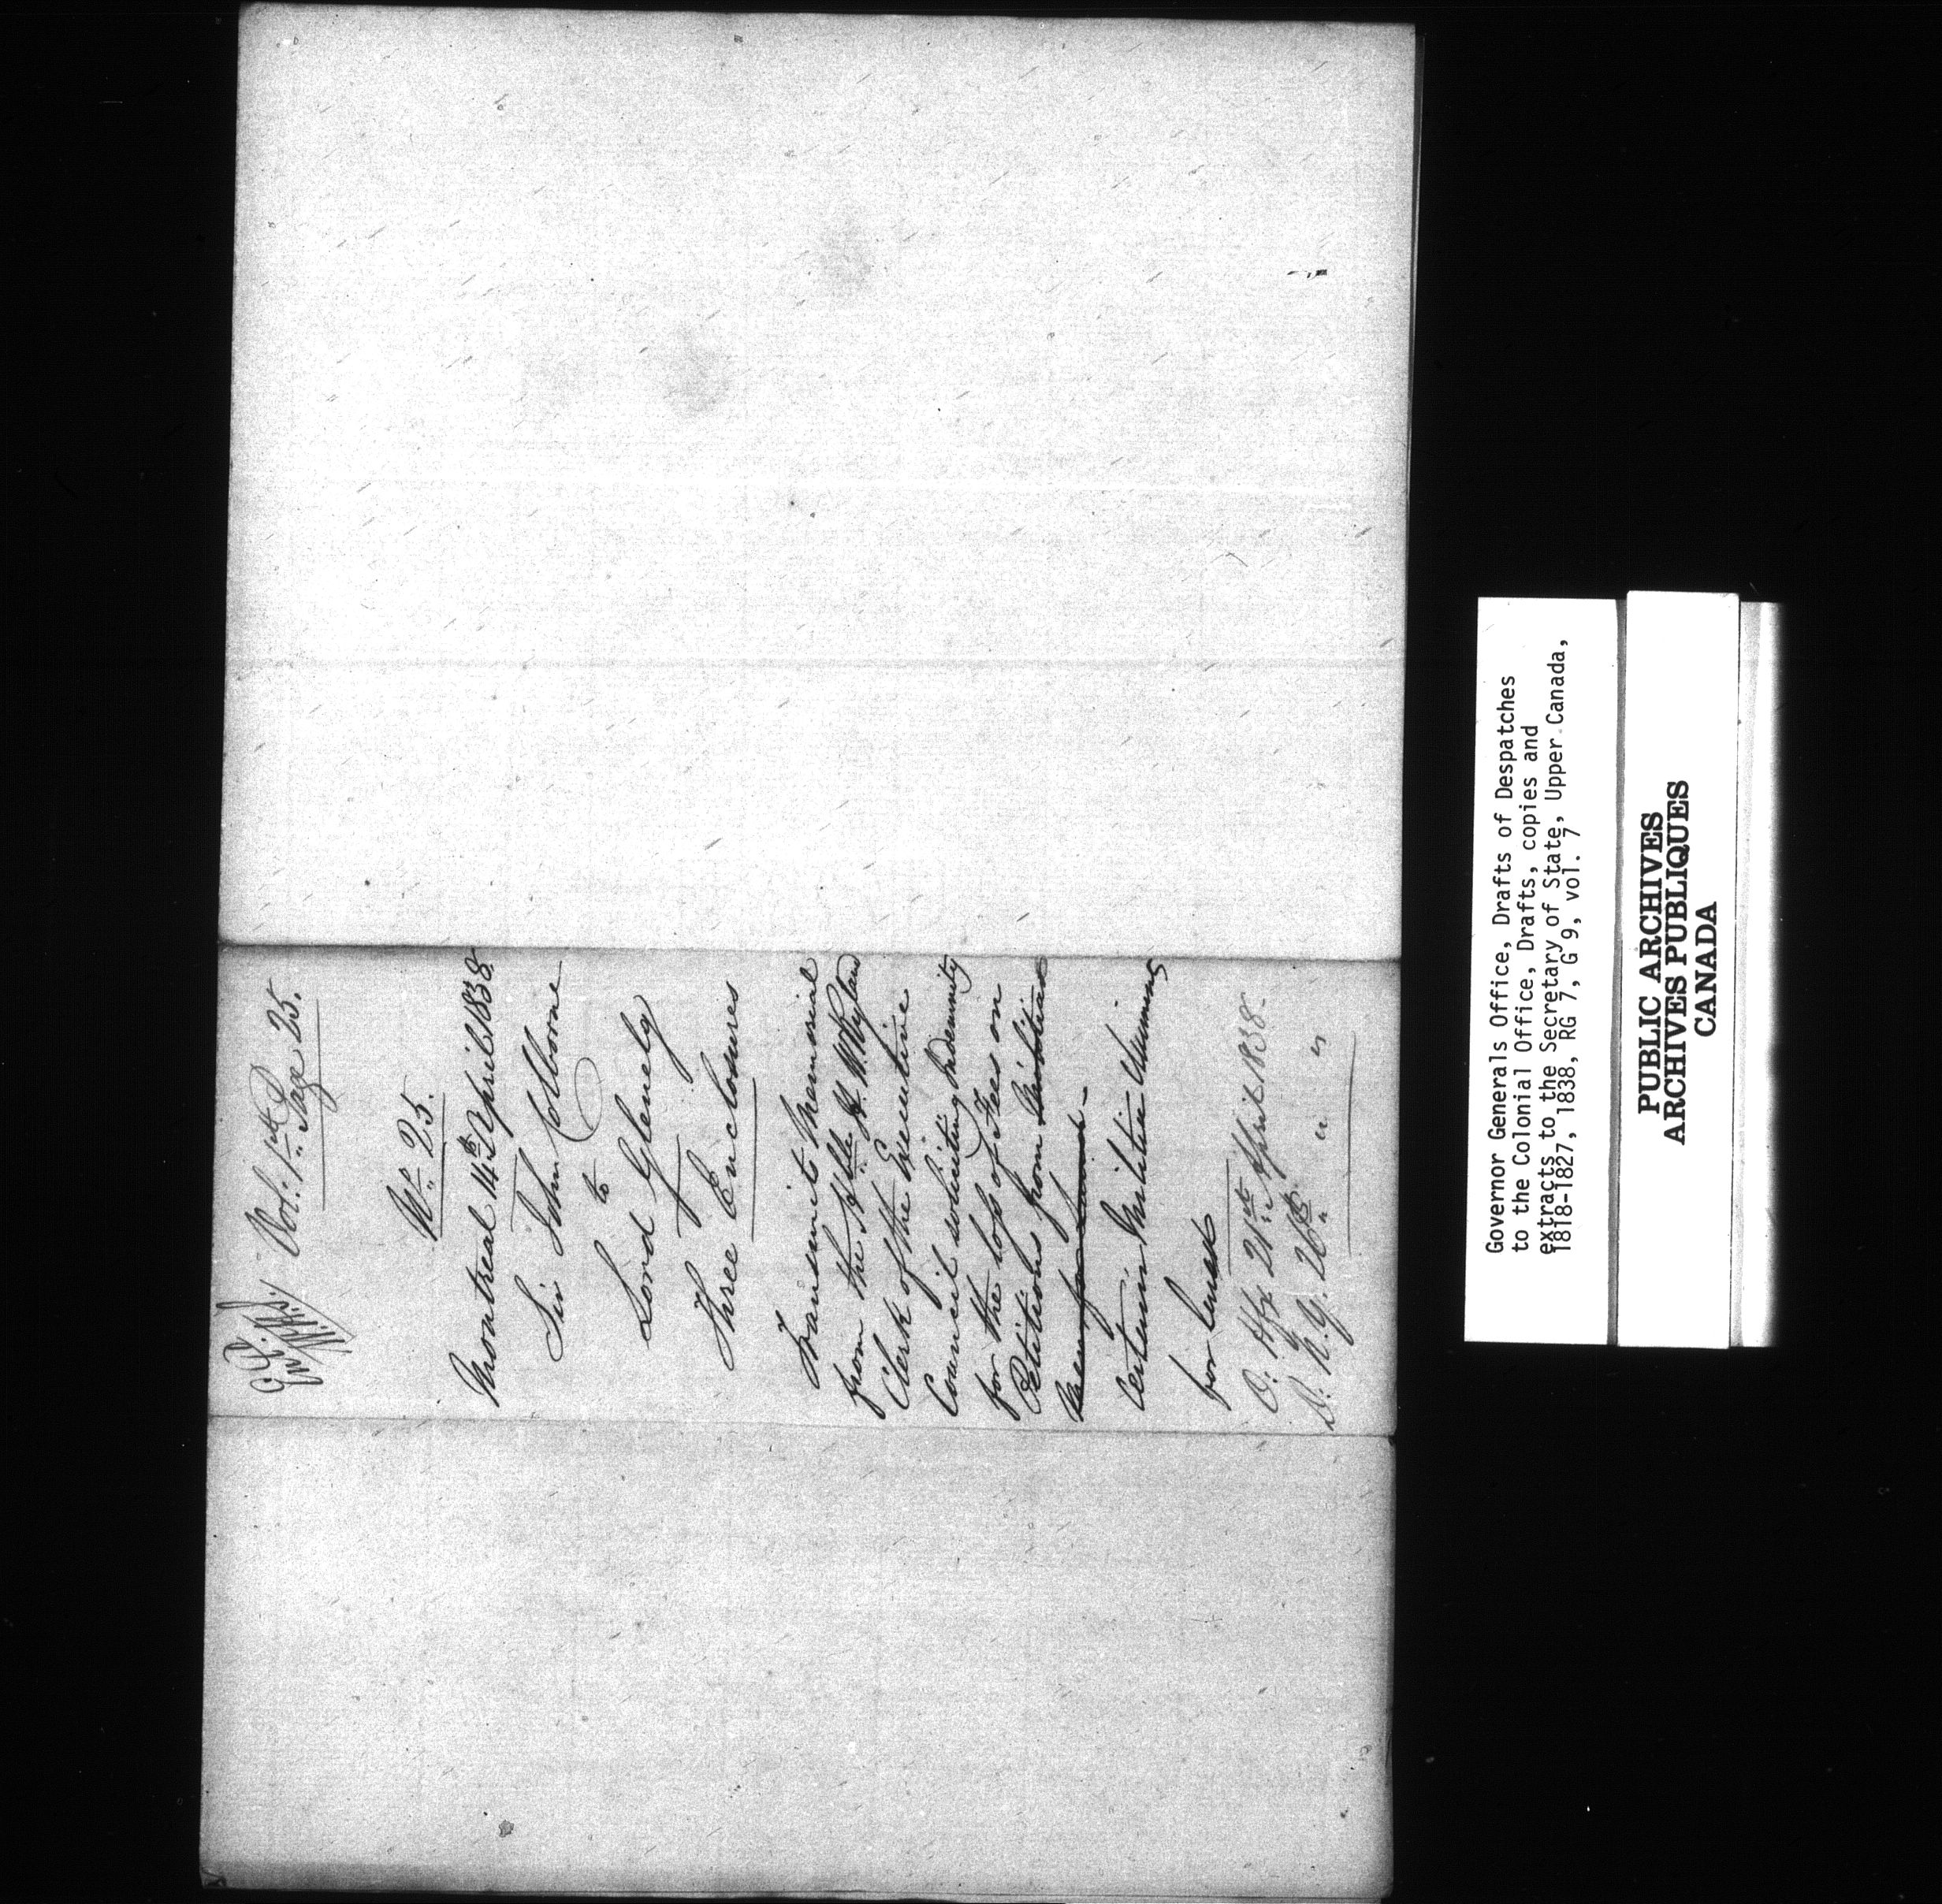 Vol: 1st Page 25.
No. 25.
Montreal 14th April 1838
Sir John Colborne
to
Lord Glenelg
Three Enclosures
Transmits Memorial
from the Hble. H. W. Ryland
Clerk of the Executive
Council soliciting Indemnity
for the loss of Fees on
Petitions from Militia
certain Militia Claimants
for Lands
O. Hfx 21st April 1838.
D: N.Y. 26th " "
Governor Generals Office, Drafts of Despatches
to the Colonial Office, Drafts, copies and
extracts to the Secretary of State, Upper Canada,
1818-1827, 1838, RG 7, G 9, vol. 7
PUBLIC ARCHIVES
ARCHIVES PUBLIQUES
CANADA